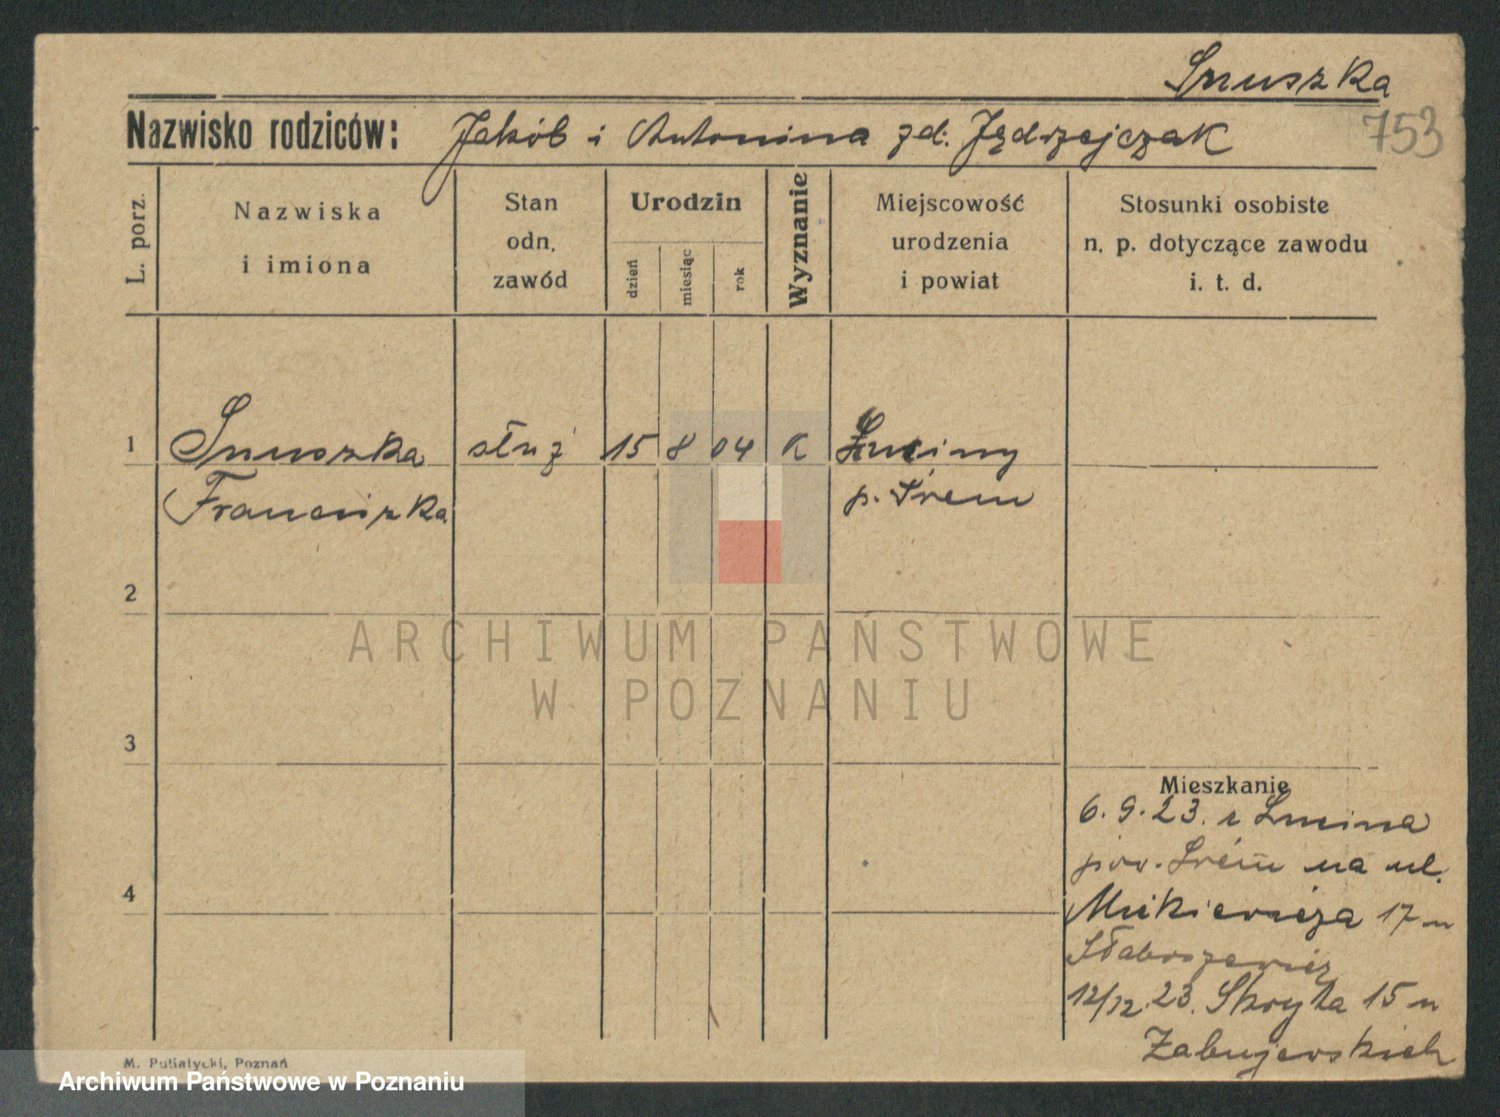 Snuszka
753
Nazwisko rodziców: Jakób i Antonina zd. Jędrzejczak
L. porz.
Nazwiska
i imiona
Stan
odn.
zawód
Urodzin
dzień
miesiąc
rok
Wyznanie
Miejscowość
urodzenia
i powiat
Stosunki osobiste
n. p. dotyczące zawodu
i. t. d.
1 Snuszka służ 15 8 04 K
Franciszka p. Śrem
2
3
4
Mieszkanie
6.9.23. z
pow. Śrem na ul.
Mickiewicza 17 u
12/12.23. Skryta 15 u
M. Putiatycki, Poznań
ARCHIWUM PAŃSTWOWE
W POZNANIU
Archiwum Państwowe w Poznaniu